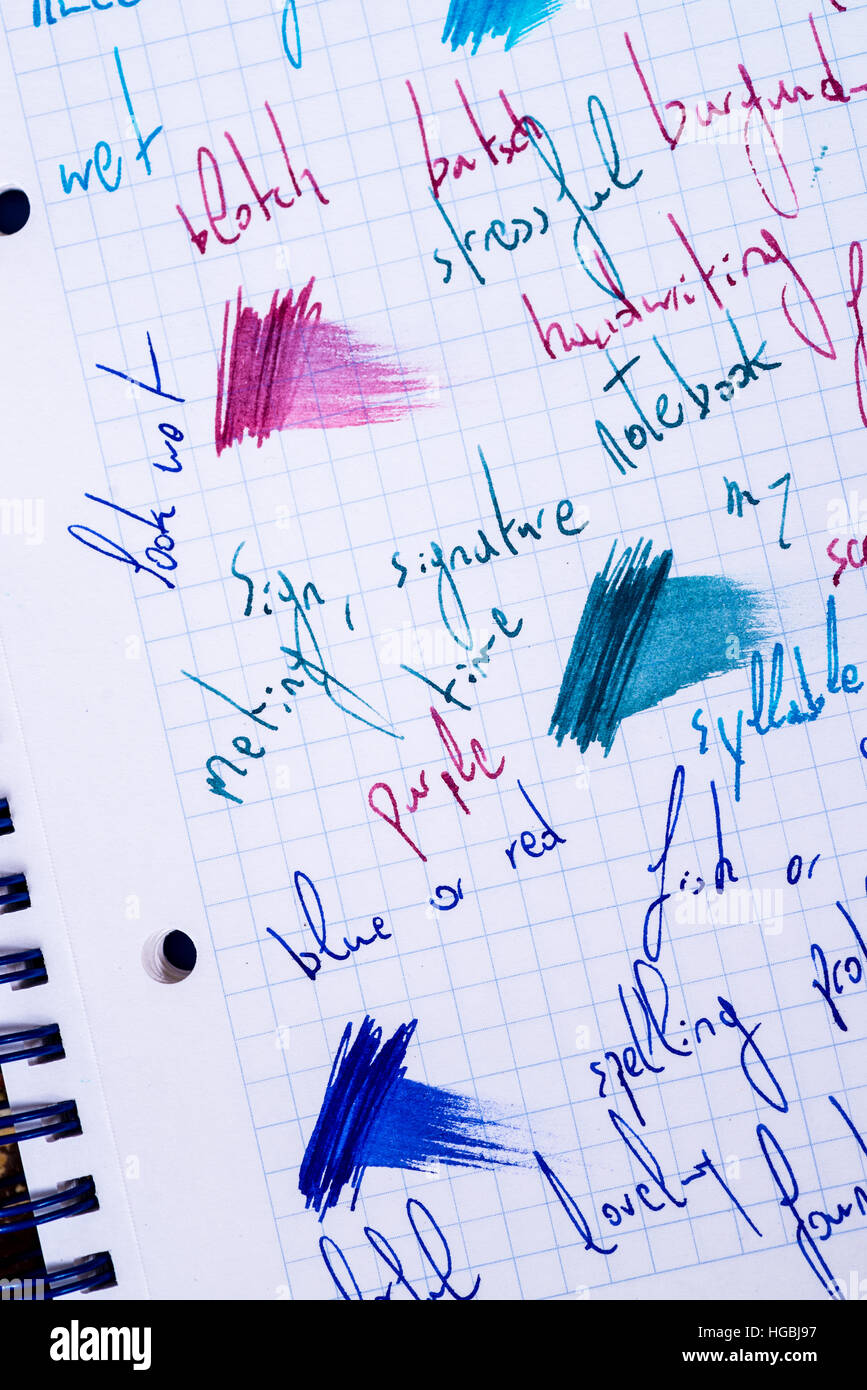 wet
blotch batsch burgund-
stressful
handwriting
notebook
look wot
my
sign, signature
meking time
syllable
purple
blue or red
fish or
spelling
lovelny
alamy
Image ID: HGBJ97
www.alamy.com